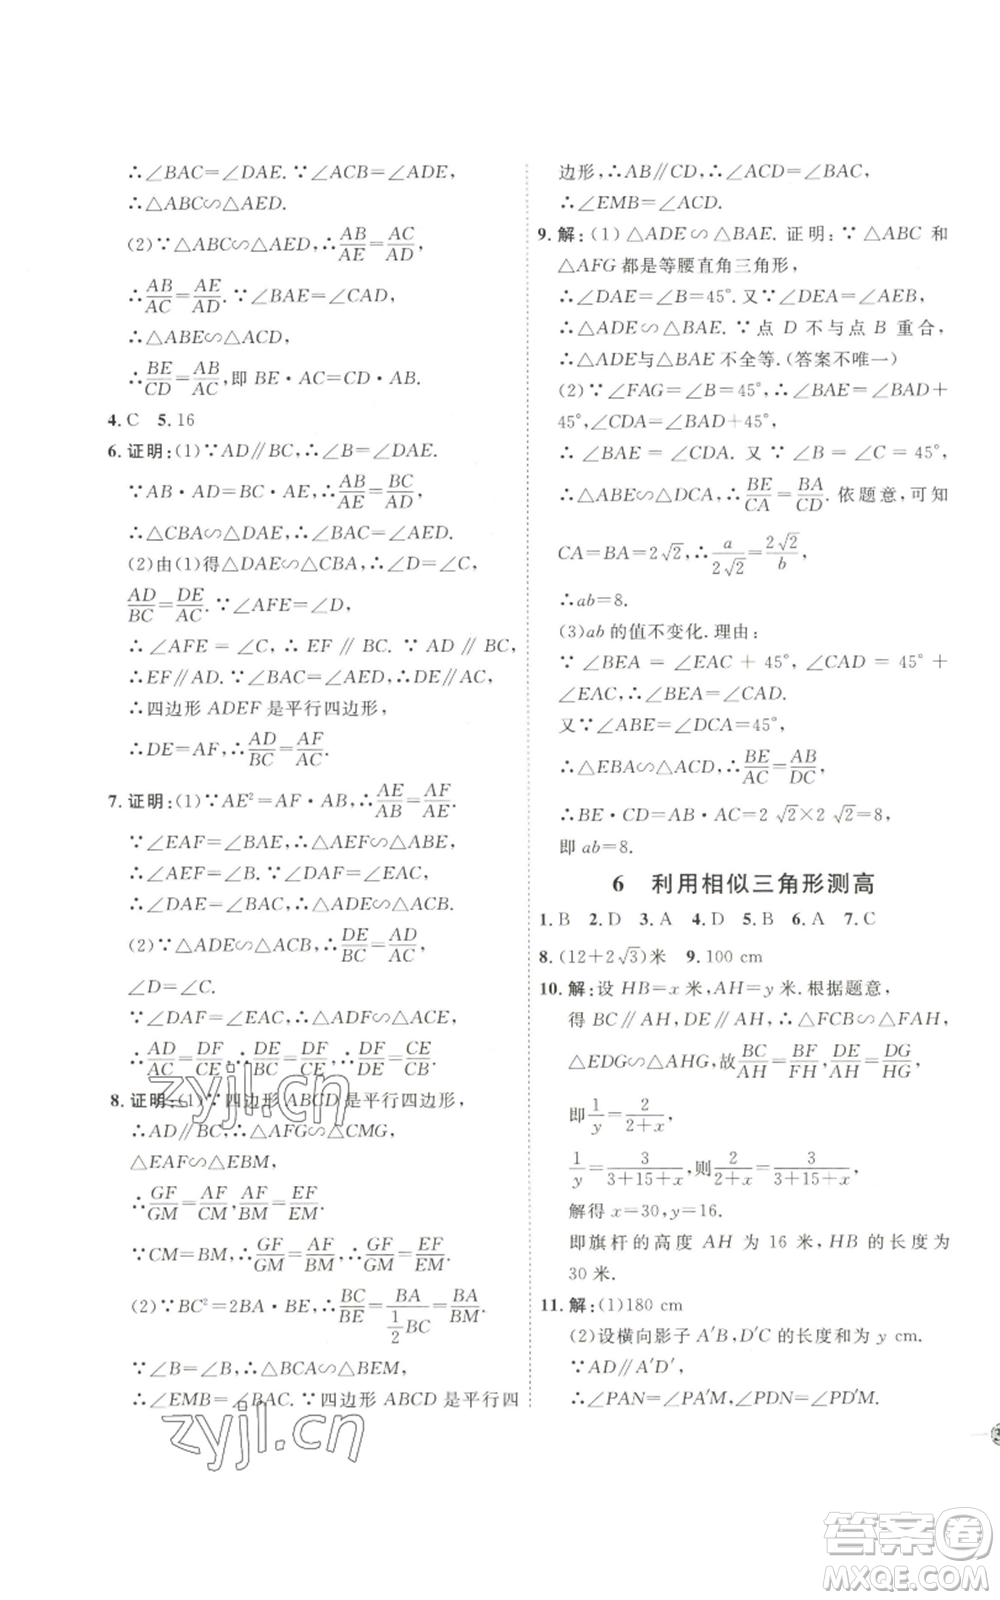 ∴∠BAC=∠DAE.∵∠BAC=∠ADE,
∴△ABC∽△AED.
(2)∵△ABC∽△AED,∴AB/AE=AC/AD,
∴AB/AC=AE/AD.∵∠BAE=∠CAD,
∴△ABE∽△ACD,
∴BE/CD=AB/AC,即 BE·AC=CD·AB.
4.C 5.16
6.证明:(1)∵AD∥BC,∴∠B=∠DAE.
∵AB·AD=BC·AE,∴AB/AE=BC/AD,
∴△CBA∽△DAE,∴∠BAC=∠AED.
(2)由(1)得△DAE∽△CBA,∴∠D=∠C,
AD/BC=DE/AC.∵∠AFE=∠D,
∴∠AFE=∠C,∴EF∥BC.∵AD∥BC,
∴EF∥AD.∵∠BAC=∠AED,
∴四边形 ADEF 是平行四边形,
∴DE=AF,∴AD/BC=AF/AC.
7.证明:(1)∵AE²=AF·AB,∴AE/AB=AF/AE.
∵∠EAF=∠BAE,∴△AEF∽△ABE,
∴∠AEF=∠B.∵∠EAF=∠B,
∴∠AEF=∠EAC,∴DE∥AC.
(2)∵△ADE∽△ABC,∴DE/AC=AD/BC,
∠D=∠C.
∵∠DAF=∠EAC,∴△DAF∽△CAE,
∴AD/AC=DF/CE,∴DE/AC=DF/CE,∴DF/DE=CE/CB.
8.证明:(1)∵四边形 ABCD 是平行四边形,
∴AD∥BC,∴△AFG∽△CMG,
△EAF∽△EBM,
∴GF/GM=AF/CM,AF/BM=EF/EM.
∵CM=BM,∴GF/GM=AF/BM,∴GF/GM=EF/EM.
(2)∵BC²=2BA·BE,∴BC/BE=BA/(1/2 BC)=BA/BM.
∵∠B=∠B,∴△BCA∽△BEM,
∴∠EMB=∠BAC.∵四边形 ABCD 是平行四
边形,∴AB∥CD,∴∠ACD=∠BAC,
∴∠EMB=∠ACD.
9.解:(1)△ADE∽△BAE.证明:∵△ABC 和
△AFG 都是等腰直角三角形,
∴∠DAE=∠B=45°.又∵∠DEA=∠AEB,
∴△ADE∽△BAE.∵点 D 不与点 B 重合,
∴△ADE与△BAE 不全等.(答案不唯一)
(2)∵∠FAG=∠B=45°,∴∠BAE=∠BAD+
45°,∠CDA=∠BAD+45°,
∴∠BAE=∠CDA.又∵∠B=∠C=45°,
∴△ABE∽△DCA,∴BE/CA=BA/CD.依题意,可知
CA=BA=2√2,∴a/2√2=2√2/b,
∴ab=8.
(3)ab 的值不变化.理由:
∵∠BEA=∠EAC+45°,∠CAD=45°+
∠EAC,∴∠BEA=∠CAD.
又∵∠ABE=∠DCA=45°,
∴△EBA∽△ACD,∴BE/AC=AB/DC,
∴BE·CD=AB·AC=2√2×2√2=8,
即 ab=8.
6 利用相似三角形测高
1.B 2.D 3.A 4.D 5.B 6.A 7.C
8.(12+2√3)米 9.100 cm
10.解:设 HB=x 米,AH=y 米.根据题意,
得 BC∥AH,DE∥AH,∴△FCB∽△FAH,
△EDG∽△AHG,故BC/AH=BF/FH,DE/AH=DG/HG,
即1/y=2/(2+x),
1/y=3/(3+15+x),则2/(2+x)=3/(3+15+x),
解得 x=30,y=16.
即旗杆的高度 AH 为 16 米,HB 的长度为
30 米.
11.解:(1)180 cm
(2)设横向影子 A′B,D′C 的长度和为 y cm.
∵AD∥A′D′,
∴∠PAN=∠PA′M,∠PDN=∠PD′M.
zyjl.cn
zyjl.cn
答案卷
MXQE.COM